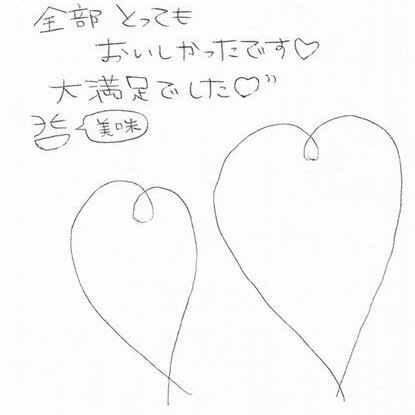 全部 とっても
おいしかったです♡
大満足でした♡”
美味